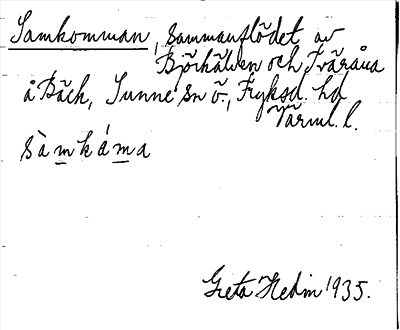 Samkomman, Sammanflödet av
Björkälven och Tväråna
å Bäck, Sunne sn ö., Fryksd. hd
Värml. l.
sàmkáma
Greta Hedin 1935.